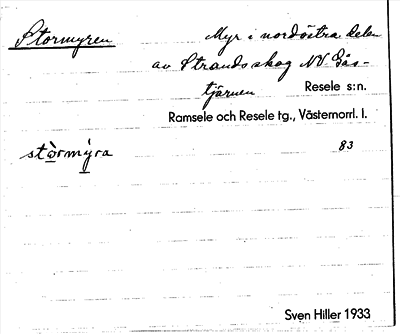 Stormyren
Myr i nordöstra delen
av Strandsskog NV. Gås-
tjärnen Resele s:n.
Ramsele och Resele tg., Västernorrl. l.
stòrmýra 83
Sven Hiller 1933